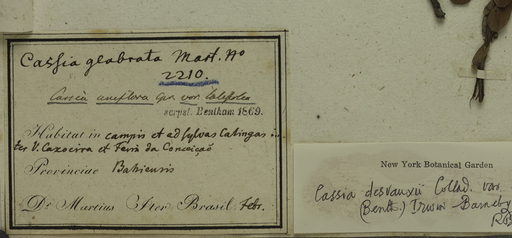 Cassia glabrata Mart. No
2210.
Cassia uniflora Spr. var. latifolia
scrpsi. Bentham 1869.
Habitat in campis et ad sylvas Catingas in
ter V. Caxoeira et Feira da Conceição
Provinciae Bahiensis
Dr. Martius Iter Brasil. Febr.
New York Botanical Garden
Cassia desvauxii Collad. var.
(Benth.) Irwin Barneby